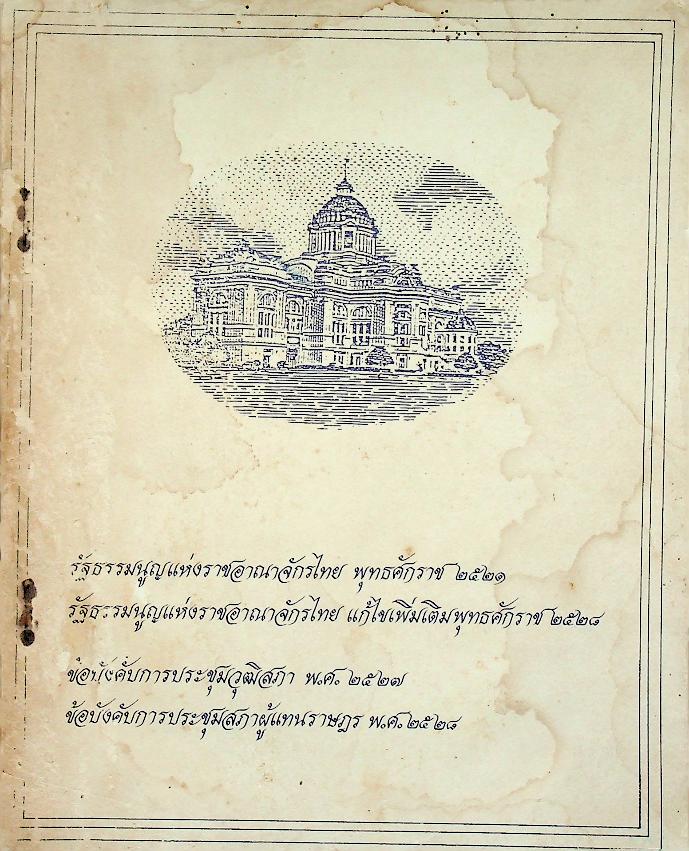 รัฐธรรมนูญแห่งราชอาณาจักรไทย พุทธศักราช ๒๕๒๑
รัฐธรรมนูญแห่งราชอาณาจักรไทย แก้ไขเพิ่มเติมพุทธศักราช ๒๕๒๘
ข้อบังคับการประชุมวุฒิสภา พ.ศ. ๒๕๒๗
ข้อบังคับการประชุมสภาผู้แทนราษฎร พ.ศ.๒๕๒๘